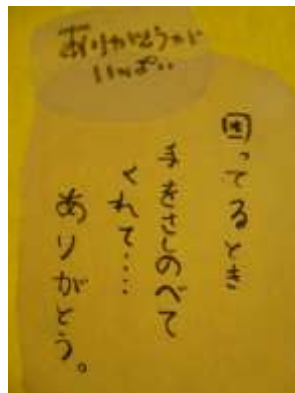 ありがとうが
いっぱい
困ってるとき
手をさしのべて
くれて‥‥
ありがとう。